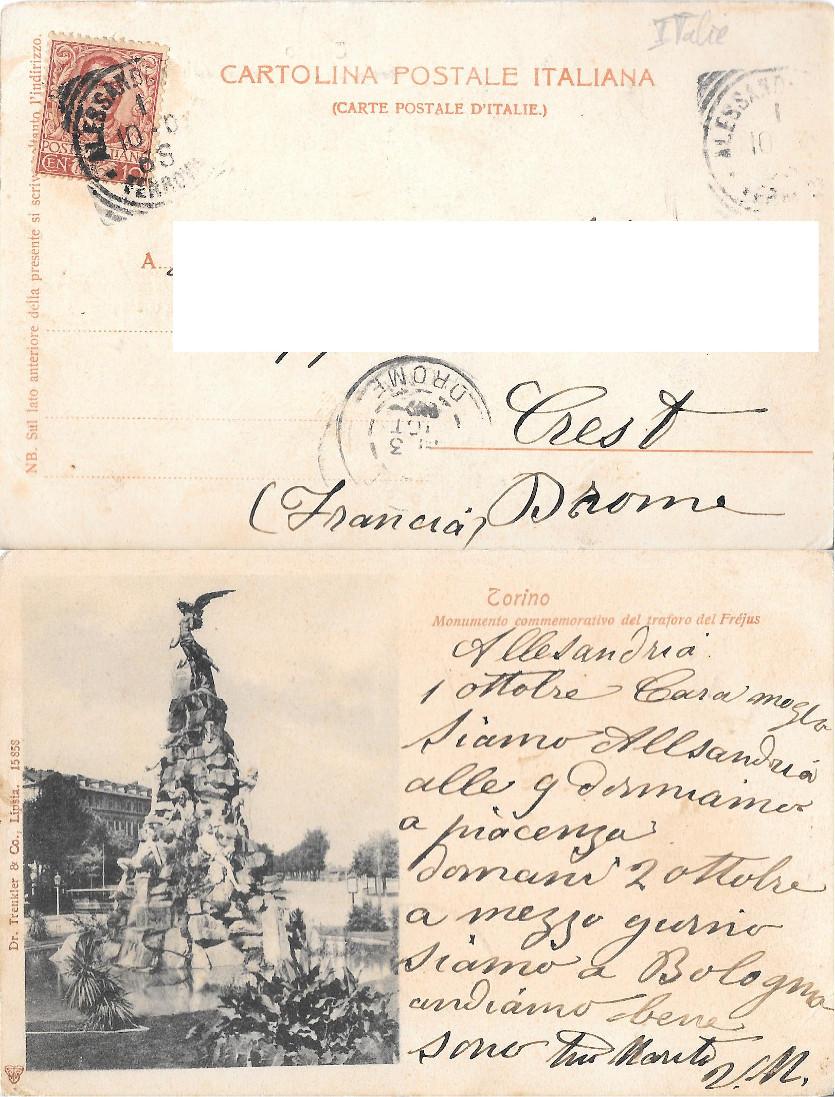 ITalie
CARTOLINA POSTALE ITALIANA
(CARTE POSTALE D'ITALIE.)
NB. Sul lato anteriore della presente si scrive soltanto l'indirizzo.
POSTE ITALIANE
CEN 10
ALESSAND
1
10
8S
FERROVIA
ALESSAND
1
10
A
DROME
3
OCT
Crest
(Francia) Drome
Torino
Monumento commemorativo del traforo del Fréjus
Dr. Trenkler & Co., Lipsia. 15 858
Allesandria
1 ottobre Cara moglia
siamo Allsandria
alle 9 dormiamo
a piacenza
domani 2 ottobre
a mezzo gurnio
siamo a Bologna
andiamo bene
sono tuo Marito
V. M.